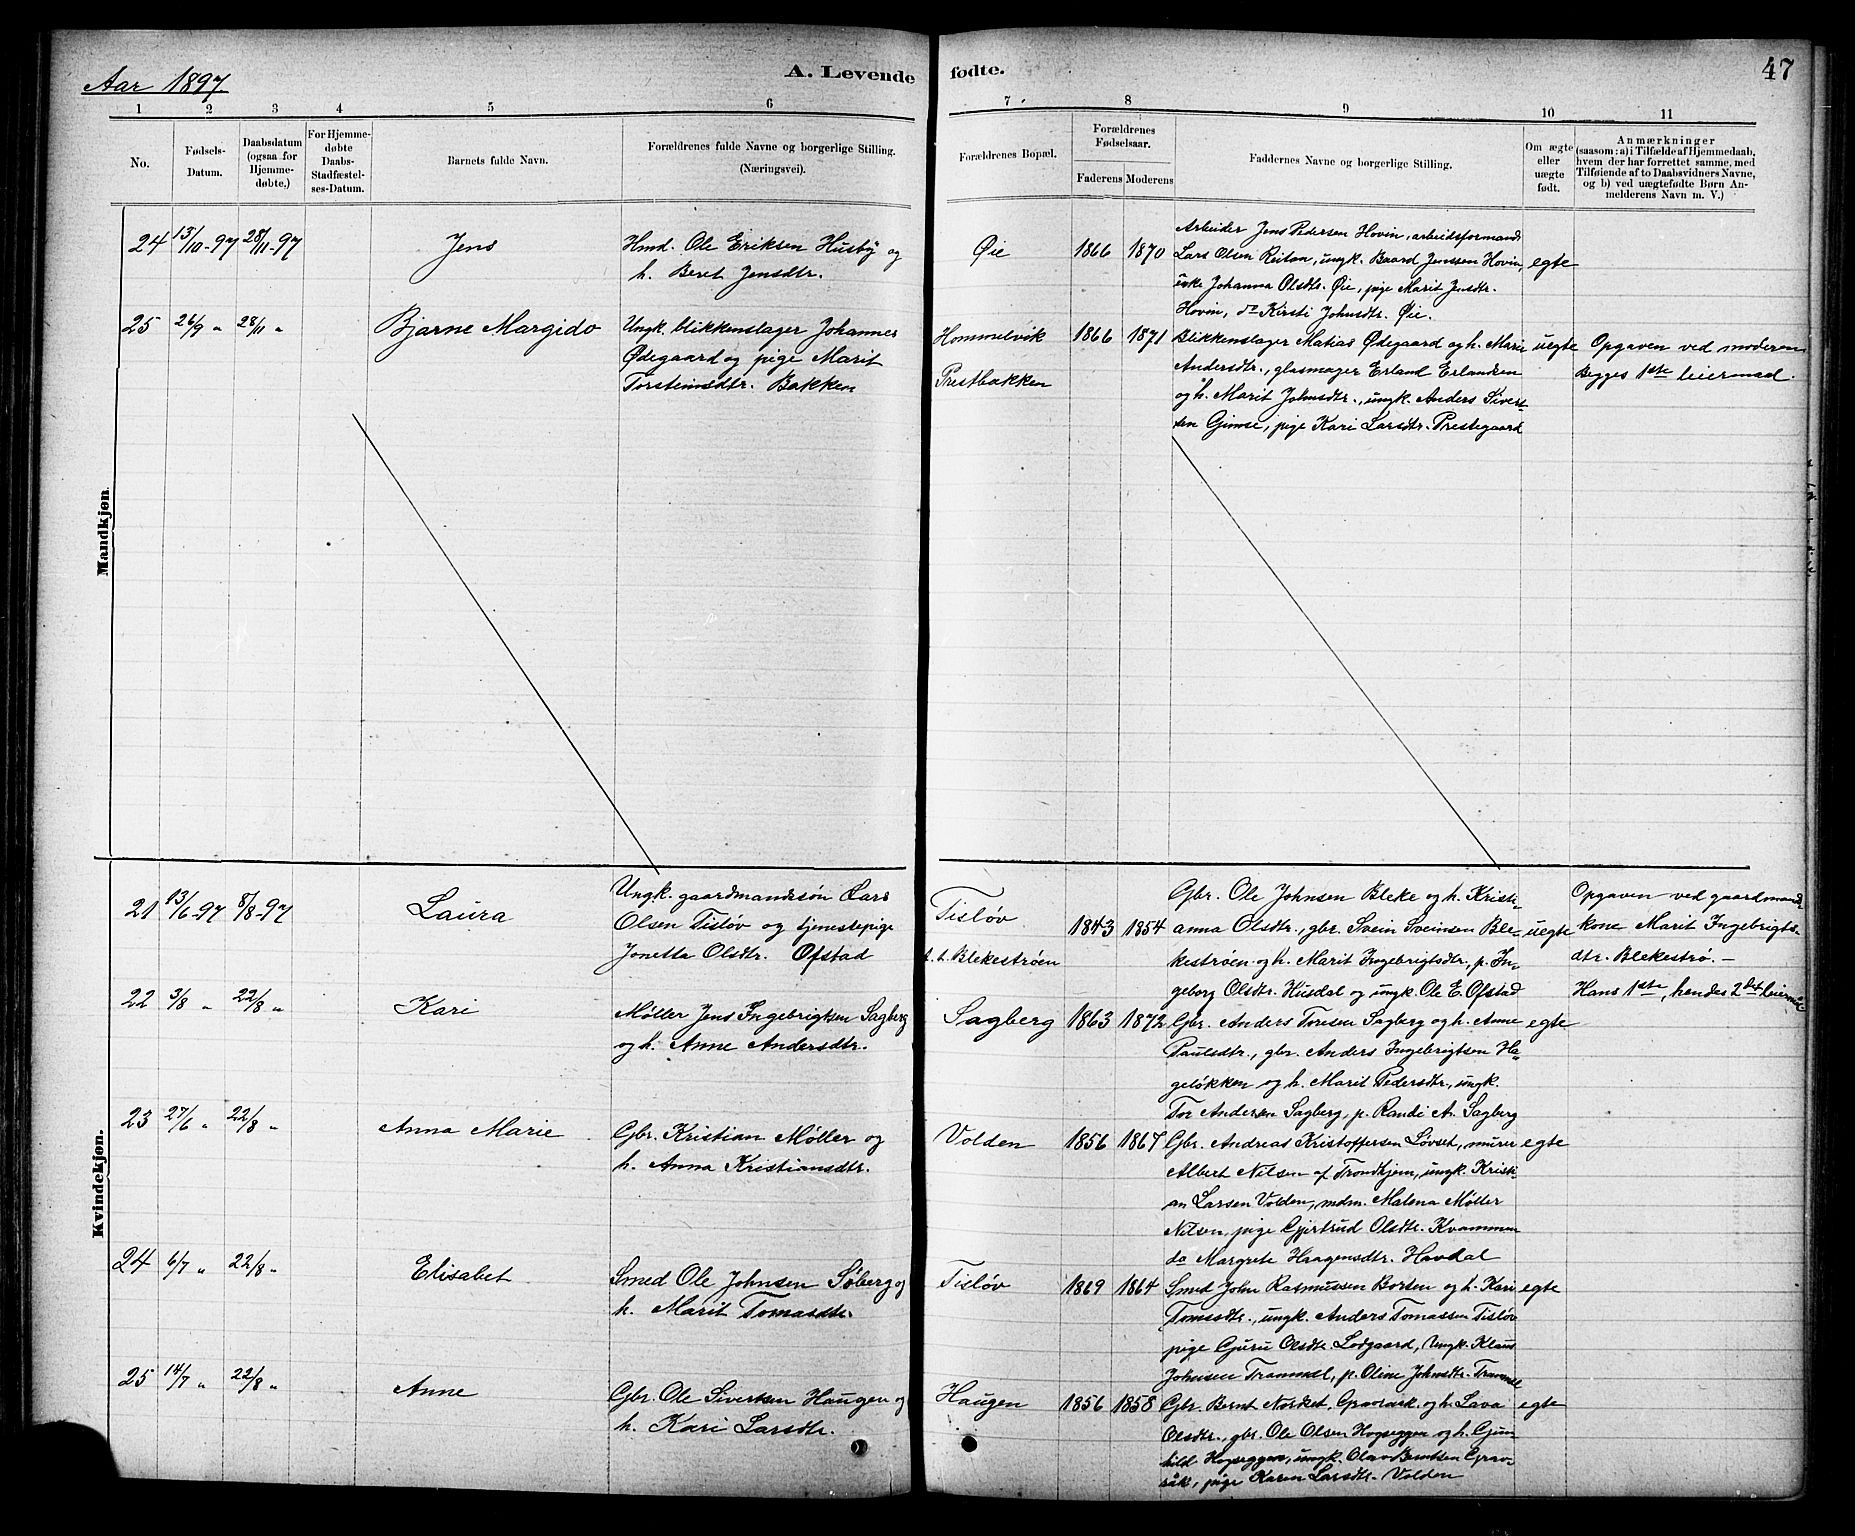 Aar 1897
A. Levende fødte.
47
1 2 3 4 5 6 7 8 9 10 11
No.
Fødsels-
Datum.
Daabsdatum
(ogsaa for
Hjemme-
døbte,)
For Hjemme-
døbte
Daabs-
Stadfæstel-
ses-Datum.
Barnets fulde Navn.
Forældrenes fulde Navne og borgerlige Stilling.
(Næringsvei).
Forældrenes Bopæl.
Forældrenes
Fødselsaar.
Faderens Moderens
Faddernes Navne og borgerlige Stilling.
Om ægte
eller
uægte
født.
Anmærkninger
(saasom: a) i Tilfælde af Hjemmedaab,
hvem der har forrettet samme, med
Tilføiende af to Daabsvidners Navne,
og b) ved uægtefødte Børn An-
melderens Navn m. V.)
Mandkjøn
24 13/10-97 28/11-97 Jens
Hmd. Ole Eriksen Husby og
h. Beret Jensdtr.
Øie 1866 1870
Arbeider Jens Pedersen Hovin, arbeidsformand
Lars Olsen Reitan, ungk. Baard Jenssen Hovin,
enke Johanna Olsdtr. Øie, pige Marit Jensdtr.
Hovin, do Kirsti Johnsdtr. Øie.
egte
25 26/9 " 28/11 " Bjarne Margido
Ungk. blikkenslager Johannes
Ødegaard og pige Marit
Torsteinsdtr. Bakken
Hommelvik
Prestbakken
1866 1871
Blikkenslager Matias Ødegaard og h. Marie
Andersdtr., glasmager Erland Erlandsen
og h. Marit Johnsdtr., ungk. Anders Sivert-
sen Gimse, pige Kari Larsdtr. Prestegaard
uegte
Opgaven ved moderen
Begges 1ste leiermaal.
Kvindekjøn.
21 13/6-97 8/8-97 Laura
Ungk. gaardmandssøn Lars
Olsen Tisløv og tjenestepige
Jonetta Olsdtr. Ofstad
Tisløv
t. t. Blekestrøen
1843 1854
Gbr. Ole Johnsen Bleke og h. Kristi-
anna Olsdtr., gbr. Svein Sveinsen Ble-
kestrøen og h. Marit Ingebrigtsdtr., p. In-
geborg Olsdtr. Husdal og ungk. Ole E. Ofstad
uegte
Opgaven ved gaardmand-
kone Marit Ingebrigts-
dtr. Blekestrø. —
Hans 1ste, hendes 2det leierm.
22 3/8 " 22/8 " Kari
Møller Jens Ingebrigtsen Sagberg
og h. Anne Andersdtr.
Sagberg 1863 1872
Gbr. Anders Toresen Sagberg og h. Anne
Paulsdtr., gbr. Anders Ingebrigtsen Ha-
geløkken og h. Marit Pedersdtr., ungk.
Tor Andersen Sagberg, p. Randi A. Sagberg
egte
23 27/6 " 22/8 " Anna Marie
Gbr. Kristian Møller og
h. Anna Kristiansdtr.
Volden 1856 1867
Gbr. Andreas Kristoffersen Løvset, murer
Albert Nilsen af Trondhjem, ungk. Kristi-
an Larsen Volden, mdm. Malena Møller
Nilsen, pige Gjertrud Olsdtr. Kvammen
do Margrete Haagensdtr. Havdal
egte
24 6/7 " 22/8 " Elisabet
Smed Ole Johnsen Søberg og
h. Marit Tomasdtr.
Tisløv 1869 1864
Smed John Rasmussen Borten og h. Kari
Tomasdtr., ungk. Anders Tomassen Tisløv
pige Guru Olsdtr. Lodgaard, Ungk. Klaus
Johnsen Trammel, p. Oline Johnsdtr. Trammel
egte
25 14/7 " 22/8 " Anne
Gbr. Ole Sivertsen Haugen og
h. Kari Larsdtr.
Haugen 1856 1858
Gbr. Bernt Gravraak og h. Lava
Olsdtr., gbr. Ole Olsen Hogseggen og h. Gun-
hild Hogseggen, ungk. Olav Berntsen Grav-
råk, pige Karen Larsdtr. Volden
egte